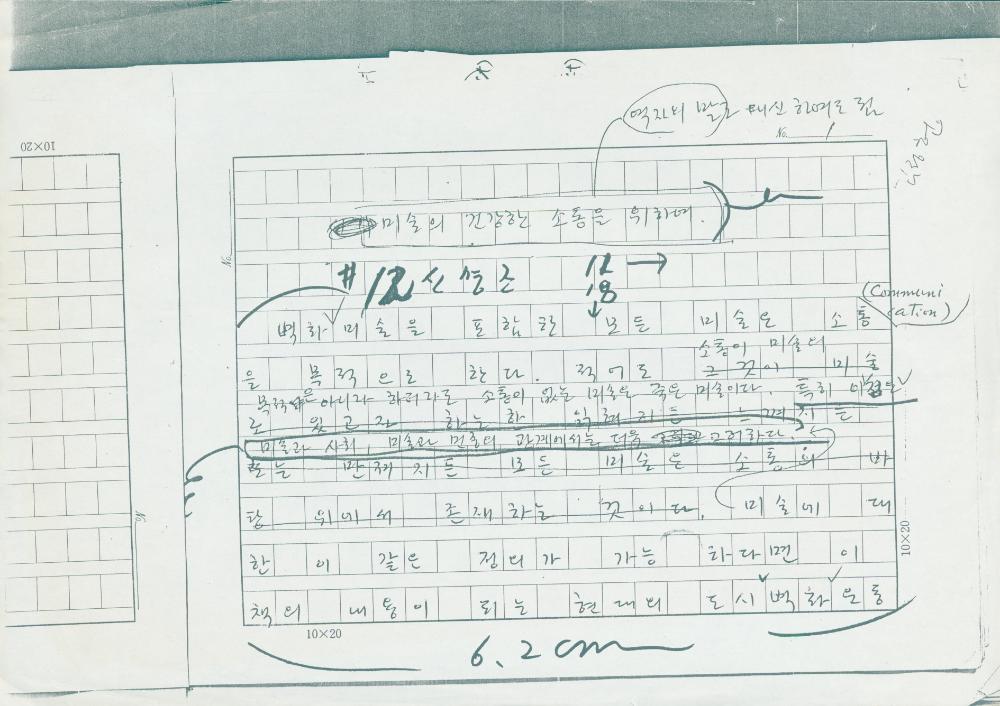 역자의 말로 대신 하여도 됨
No. 1
10×20
미술의 건강한 소통을 위하여.
No.
#12 신명조 12 →
18 ↓
(Communi
cation)
벽화 미술을 포함한 모든 미술은 소통
소통이 미술의
을 목적으로 한다. 적어도 그것이 미술
목적은 아니라 하더라도 소통이 없는 미술은 죽은 미술이다. 특히
로 있고자 하는 한 읽혀지든 느껴지든
미술과 사회, 미술과 민중의 관계에서는 더욱 그러하다.
또는 만져지든 모든 미술은 소통의 바
탕 위에서 존재하는 것이다. 미술에 대
한 이 같은 정의가 가능하다면 이
책의 내용이 되는 현대의 도시 벽화운동
10×20
No.
10×20
6.2cm